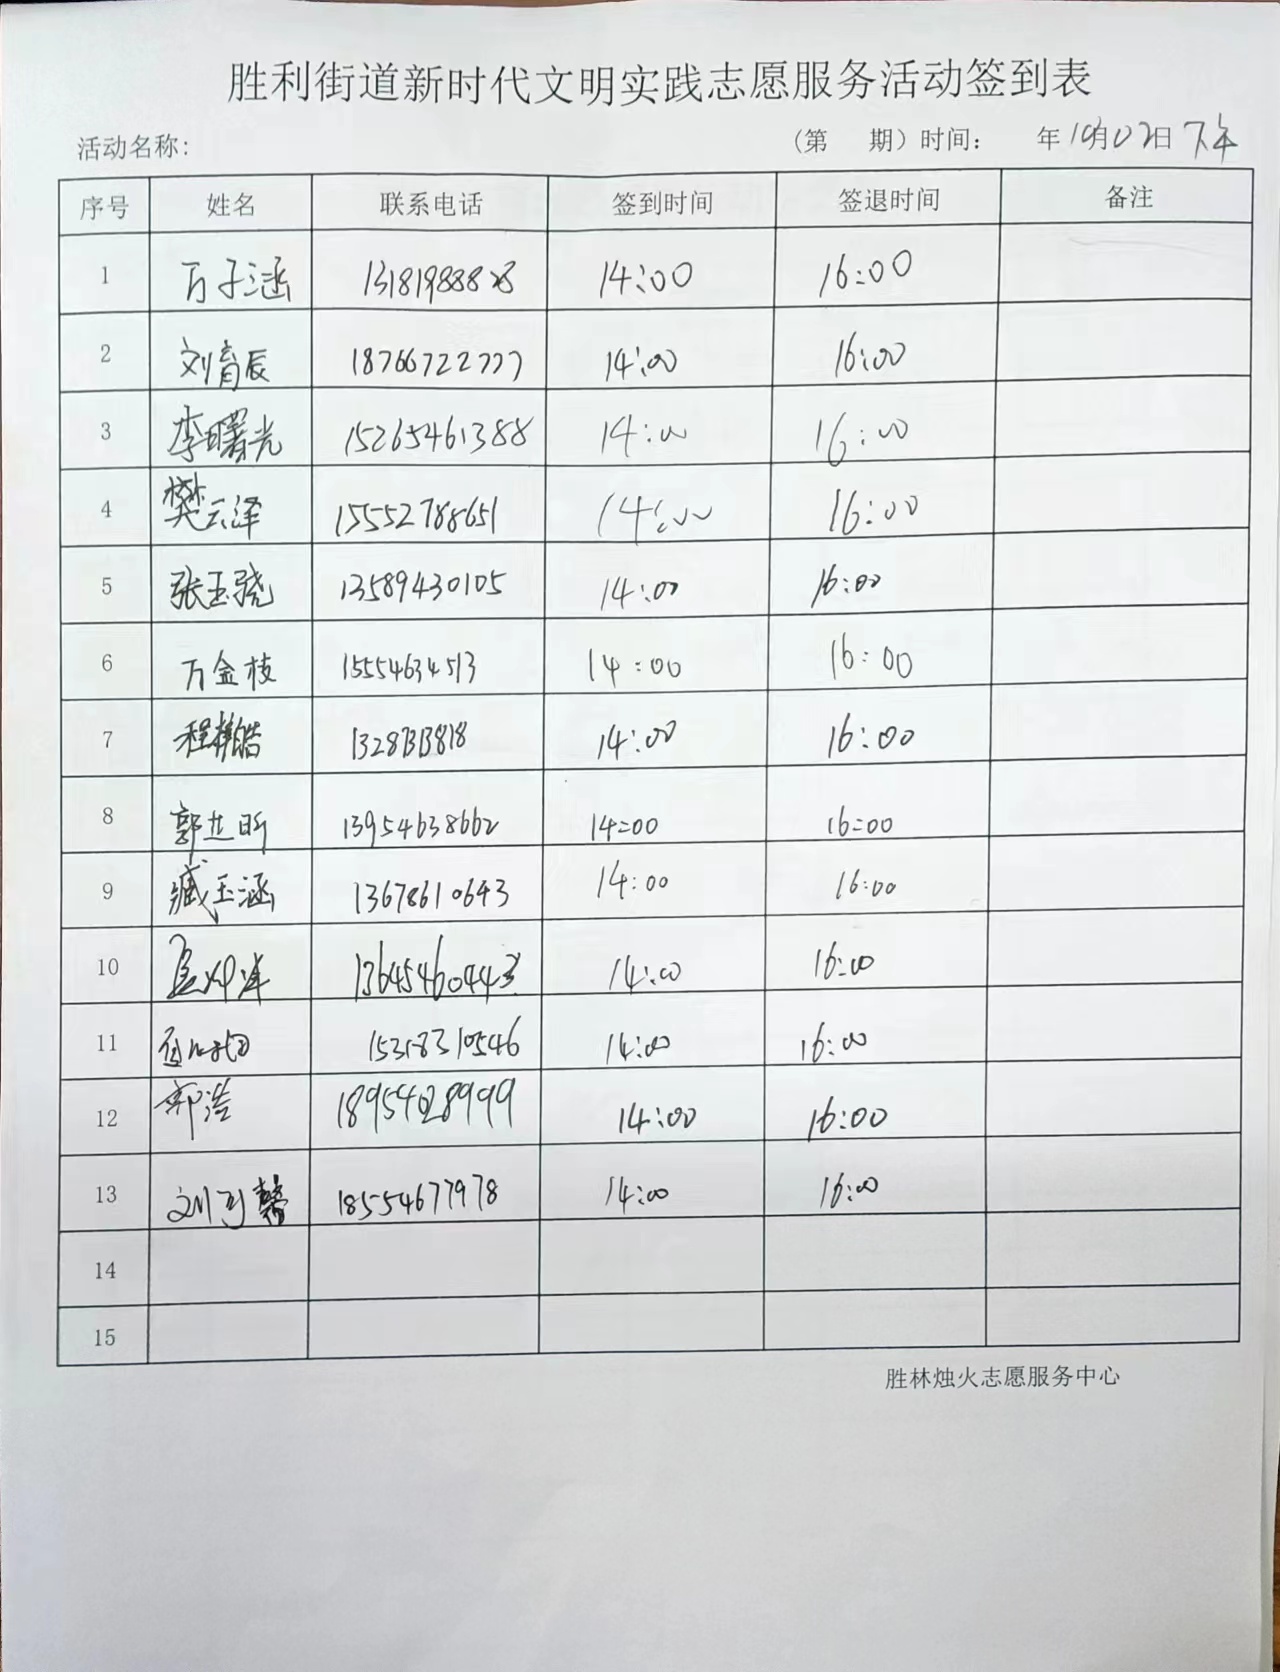 胜利街道新时代文明实践志愿服务活动签到表
活动名称: (第 期)时间: 年10月02日 下午
序号 姓名 联系电话 签到时间 签退时间 备注
1 万子涵 13181988828 14:00 16:00
2 刘育辰 18766722777 14:00 16:00
3 李曙光 15265461388 14:00 16:00
4 樊云泽 15552788651 14:00 16:00
5 张玉骁 13589430105 14:00 16:00
6 万金枝 15554634513 14:00 16:00
7 程 皓 14:00 16:00
8 郭芷昕 13954638662 14:00 16:00
9 臧玉涵 13678610643 14:00 16:00
10 13645460443 14:00 16:00
11 15318310546 14:00 16:00
12 郭浩 14:00 16:00
13 刘 馨 18554677978 14:00 16:00
14
15
胜林烛火志愿服务中心